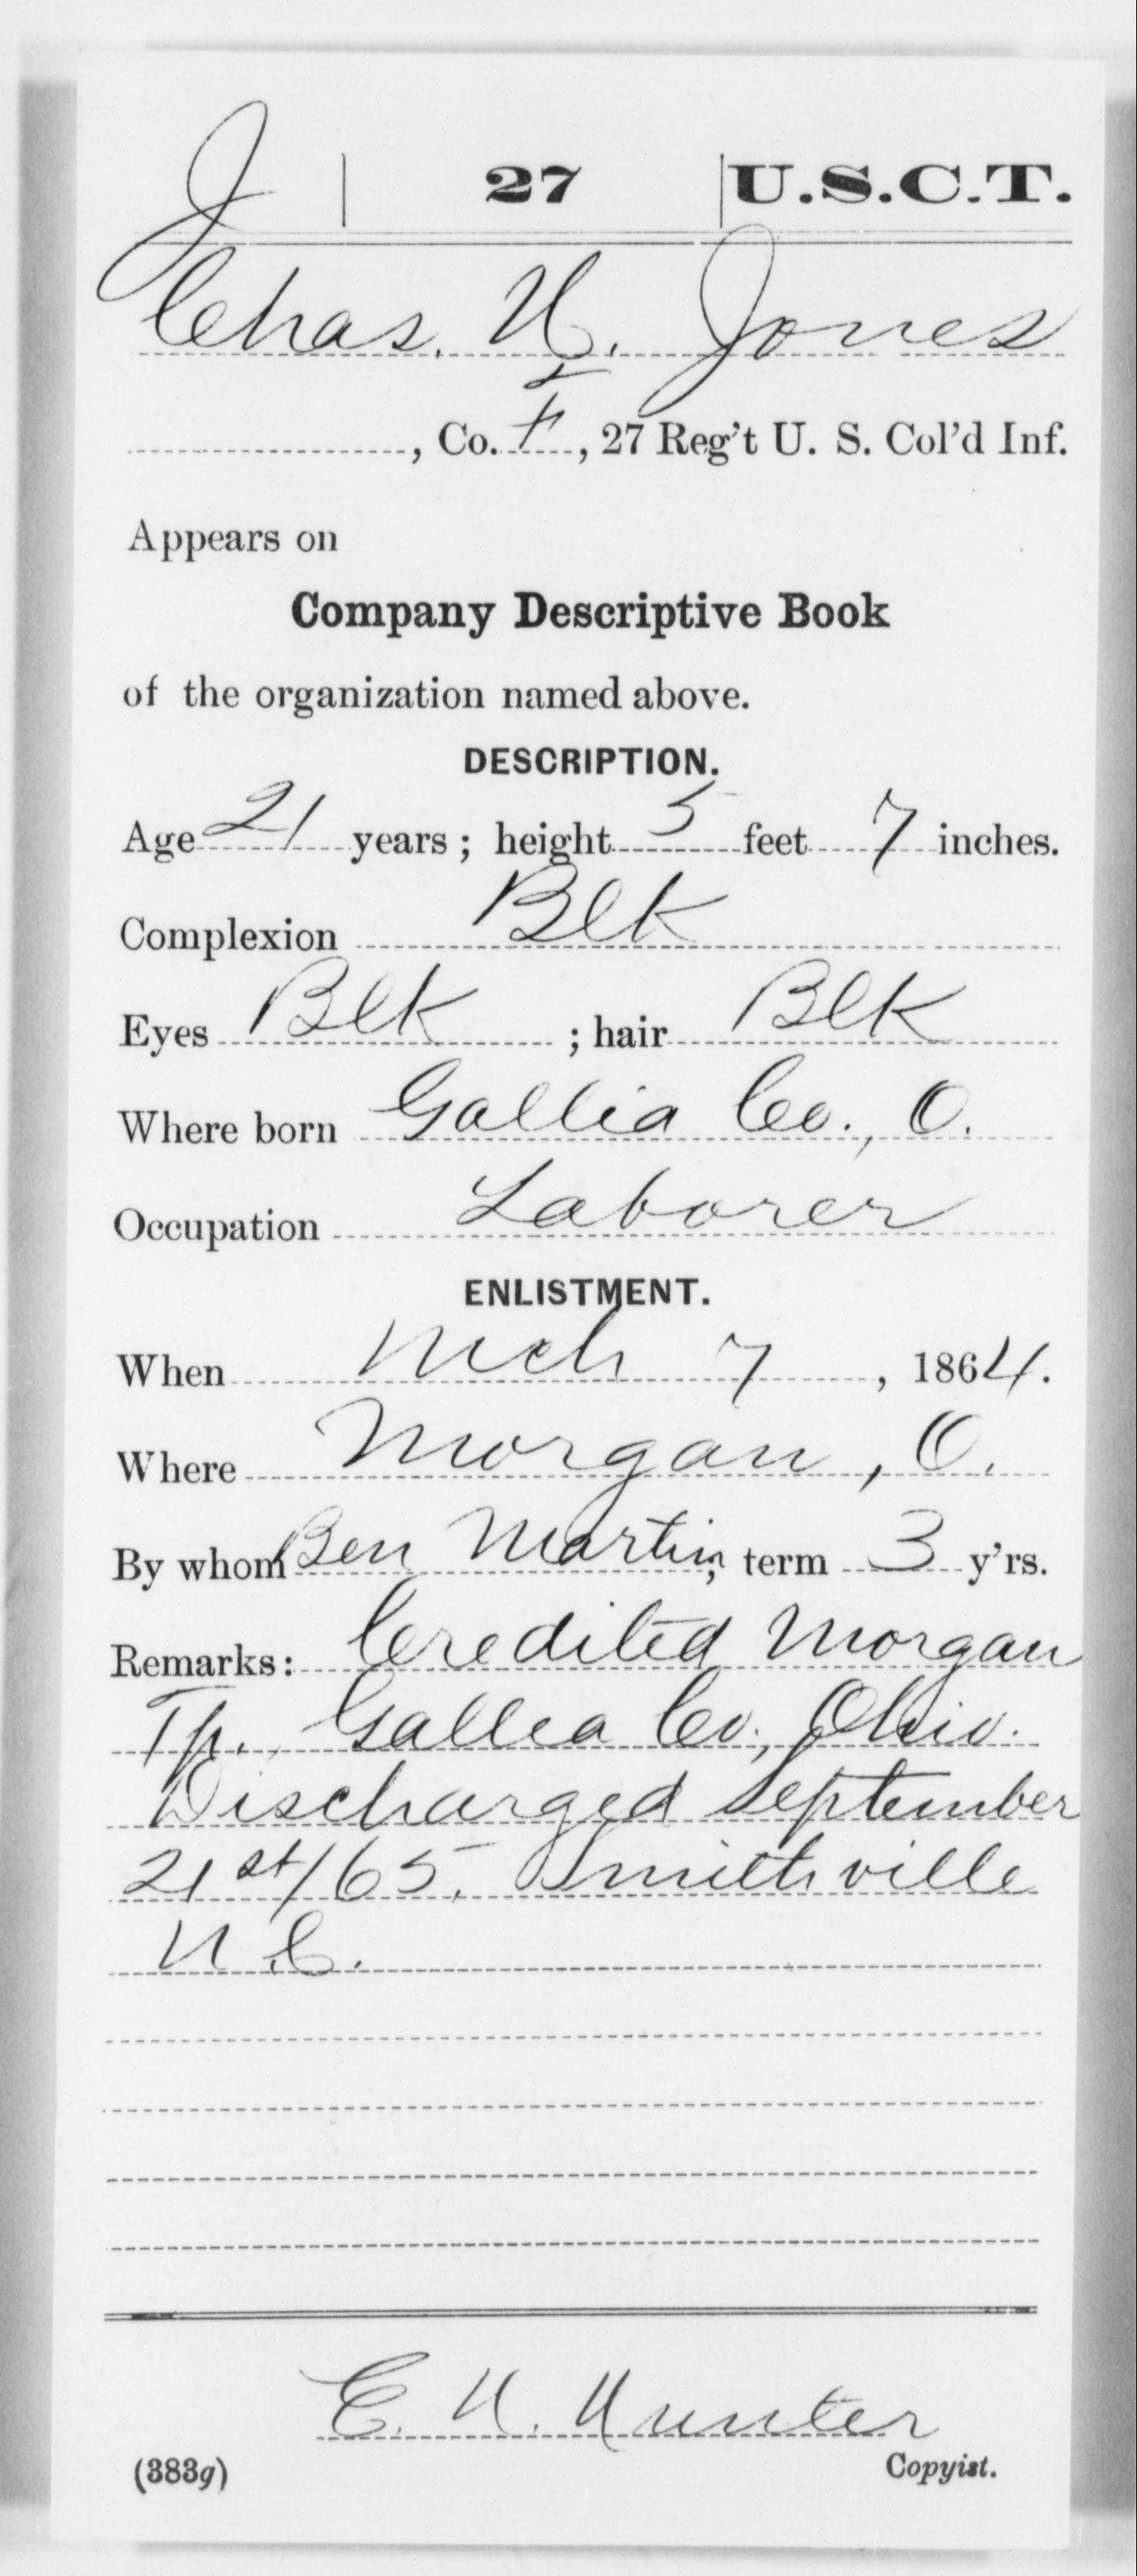 J | 27 | U.S.C.T.
Chas. H. Jones
, Co. F, 27 Reg't U. S. Col'd Inf.
Appears on
Company Descriptive Book
of the organization named above.
DESCRIPTION.
Age 21 years; height 5 feet 7 inches.
Complexion Blk
Eyes Blk ; hair Blk
Where born Gallia Co., O.
Occupation Laborer
ENLISTMENT.
When Mch 7, 1864.
Where Morgan, O.
By whom Ben Martin, term 3 y'rs.
Remarks: Credited Morgan
Tp., Gallia Co., Ohio.
Discharged September
21st/65, Smithville
N.C.
Hunter
(383g) Copyist.